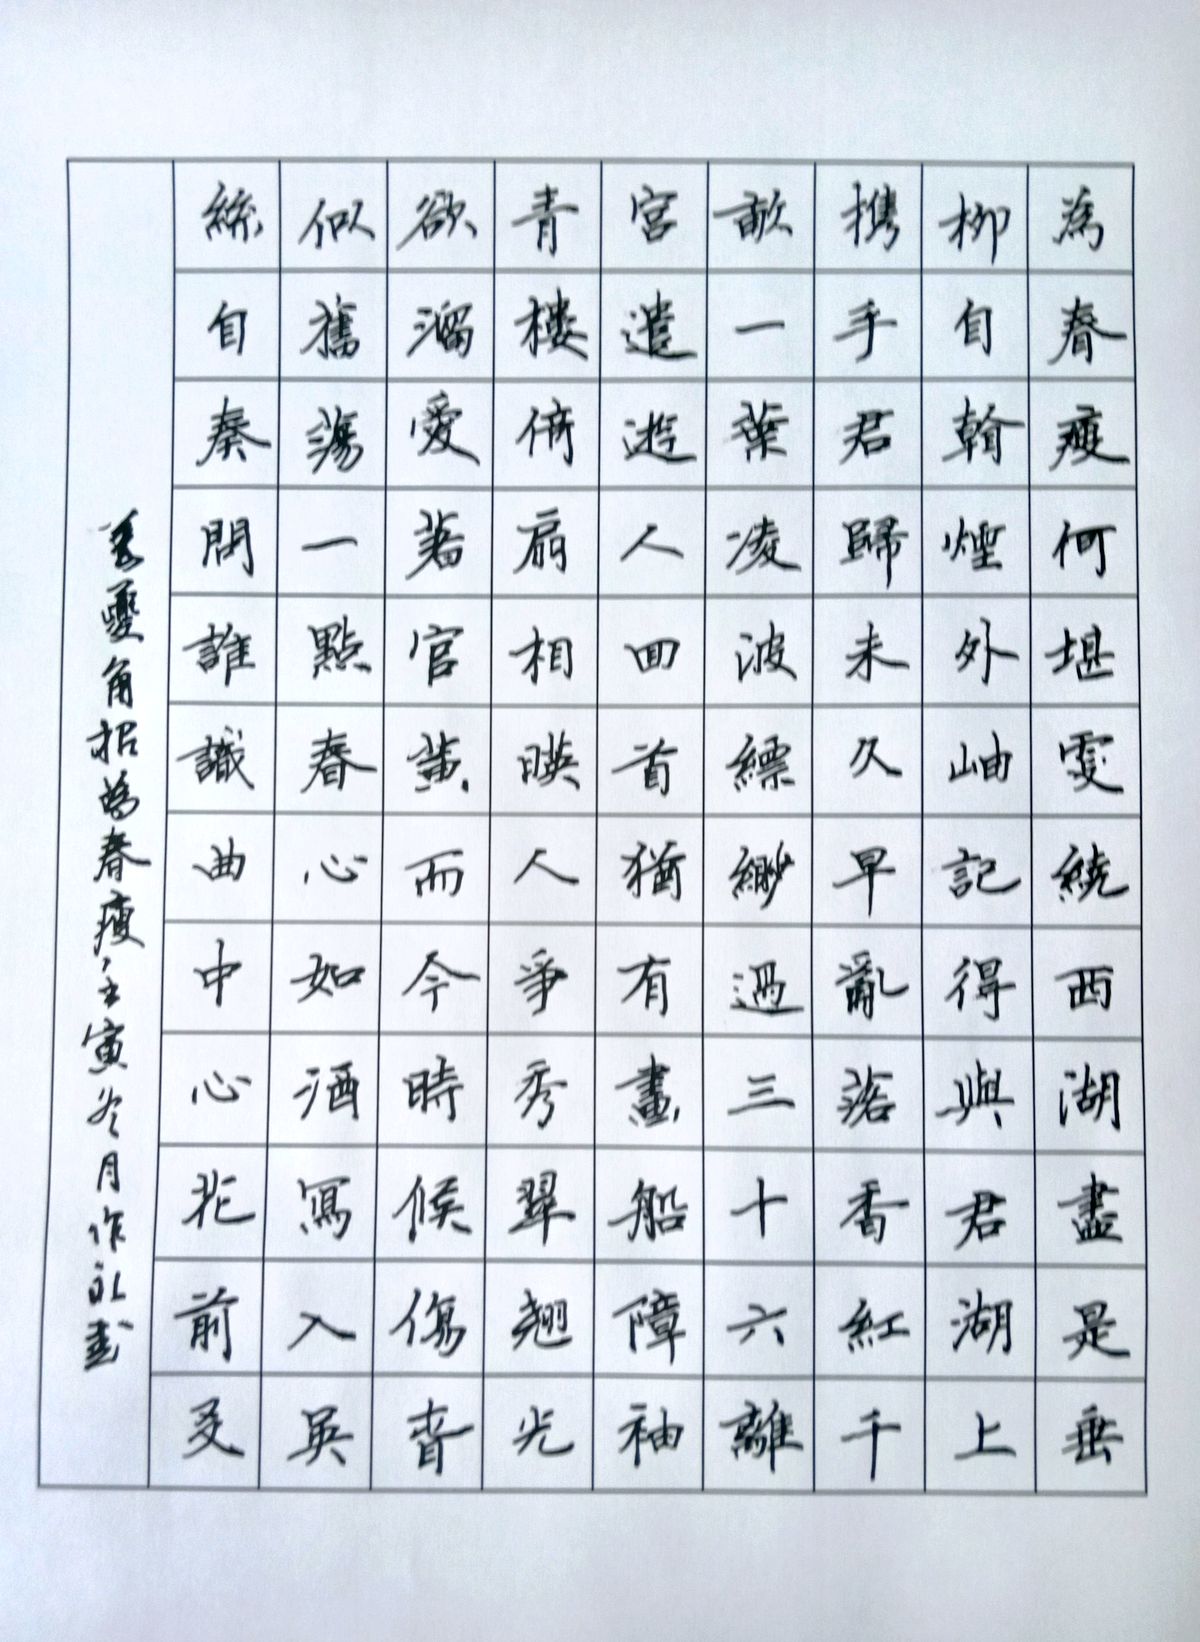 為春瘦何堪更繞西湖盡是垂
柳自翰煙外岫記得與君湖上
携手君歸未久早亂落香紅千
畝一葉凌波縹緲過三十六離
宮遣遊人回首猶有畫船障袖
青樓倚扇相暎人爭秀翠翹光
欲溜愛著宮黃而今時候傷春
似舊蕩一點春心如酒寫入吳
絲自奏問誰識曲中心花前友
姜夔角招為春瘦壬寅冬月作礼書